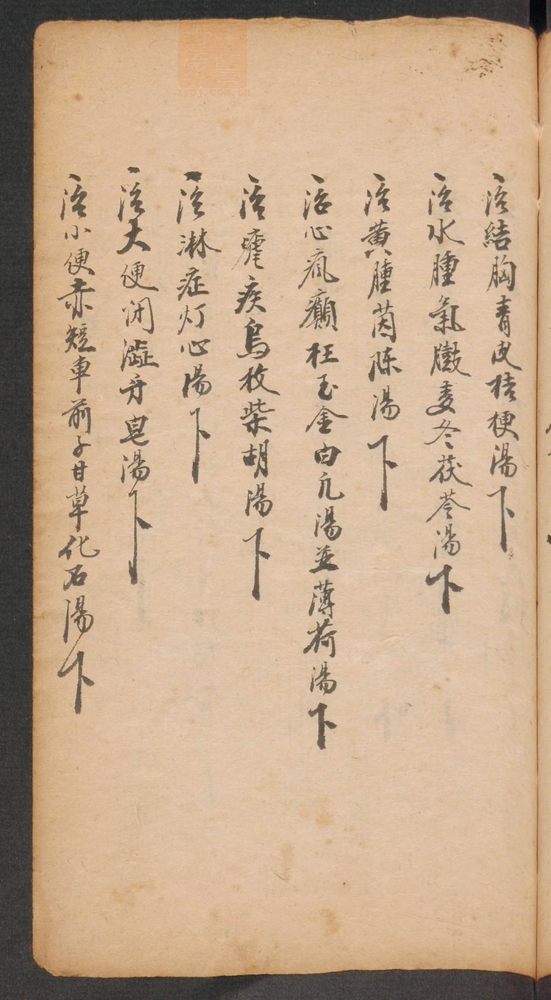 一治結胸青皮桔梗湯下
一治水腫氣臌麦冬茯苓湯下
一治黄腫茵陈湯下
一治心疯癲狂玉金白凡湯並薄荷湯下
一治瘧疾烏枚柴胡湯下
一治淋症灯心湯下
一治大便闭澁牙皂湯下
一治小便赤短車前子甘草化石湯下